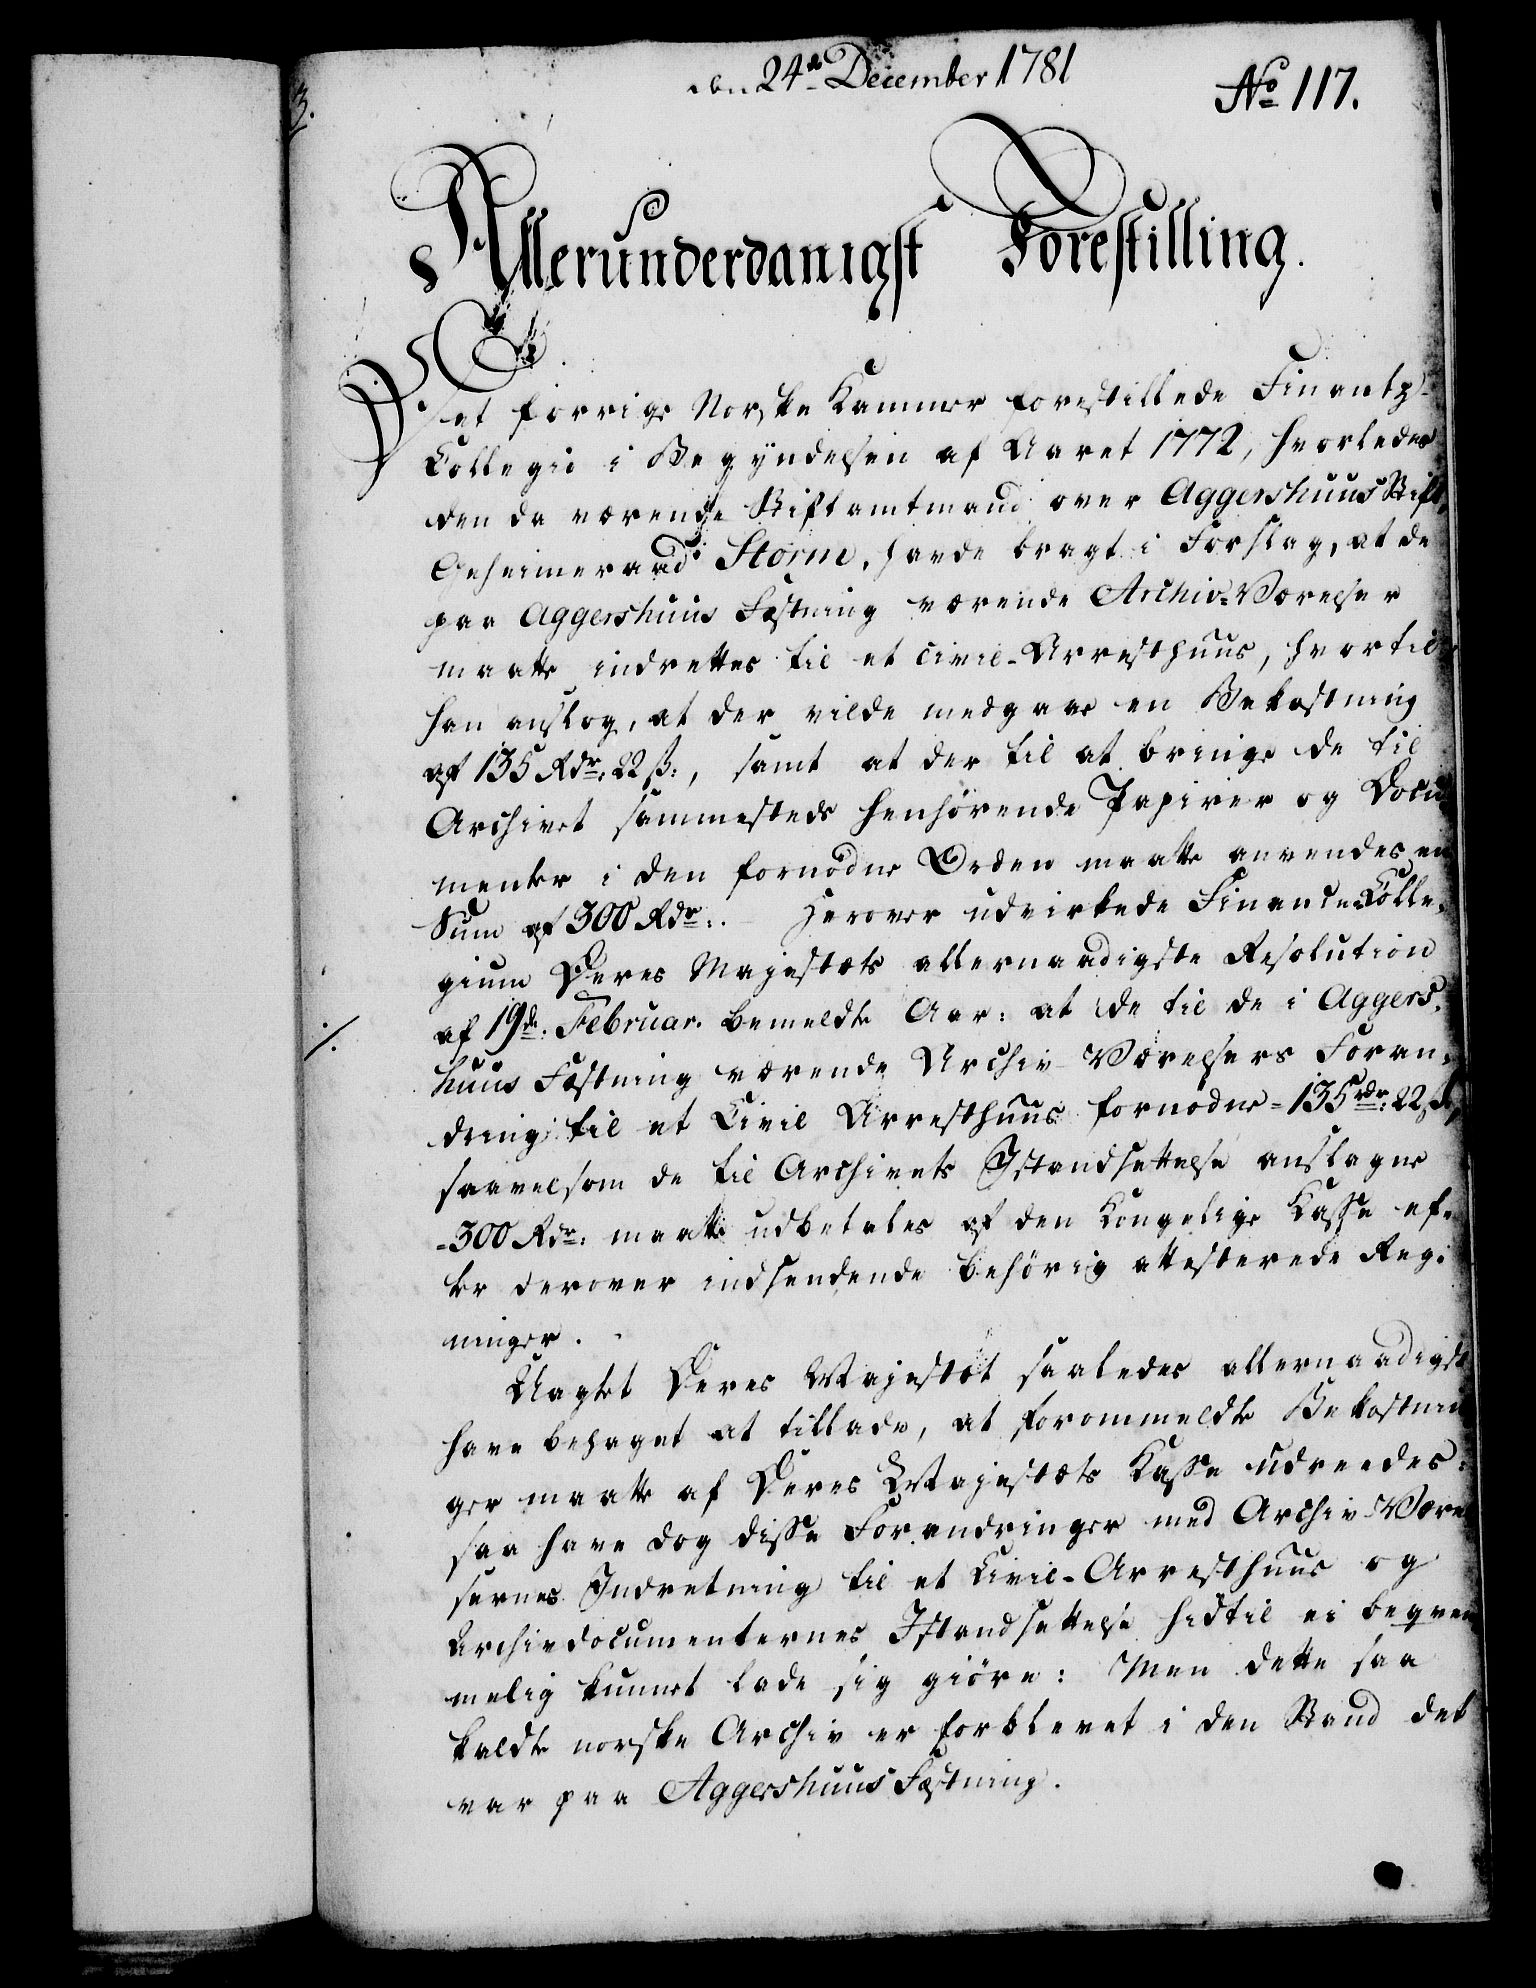 den 24de December 1781
No 117.
3.
Allerunderdanigst Forestilling.
Det forrige Norske Kammer forestillede Finantz-
Collegio i Begyndelsen af Aaret 1772, hvorledes
den da værende Stiftamtmand over Aggershuus Stift,
Geheimeraad Storm, havde bragt i Forslag, at de
paa Aggershuus Fæstning værende Archiv-Værelser
maatte indrettes til et civil-Arresthuus, hvortil
han anslog, at der vilde medgaae en Bekostning
af 135 Rdr: 22 ß:, samt at der til at bringe de til
Archivet sammesteds henhørende Papirer og Docu-
menter i den fornødne Orden maatte anvendes en
Sum af 300 Rdr:. Herover udvirkede Finance-Colle-
gium Deres Majestæts allernaadigste Resolution
af 19de Februar. bemeldte Aar: at de til de i Aggers-
./.
huus Fæstning værende Archiv-Værelsers Foran-
dring til et Civil Arresthuus fornødne - 135 rdr: 22 ß,
saavelsom de til Archivets Istandsættelse anslagne
-300 Rdr: maatte udbetales af den Kongelige Kasse ef-
ter derover indsendende behørig attesterede Reg-
ninger.
Uagtet Deres Majestæt saaledes allernaadigst
have behaget at tillade, at forommeldte Bekostnin-
ger maatte af Deres Majestæts Kasse udreedes:
saa have dog disse Forandringer med Archiv-Værel-
sernes Indretning til et Civil-Arresthuus og
Archivdocumenternes Istandsættelse hidtil ei beqvem-
melig kunnet lade sig giøre: Men dette saa
kaldte norske Archiv er forblevet i den Stand det
var paa Aggershuus Fæstning.